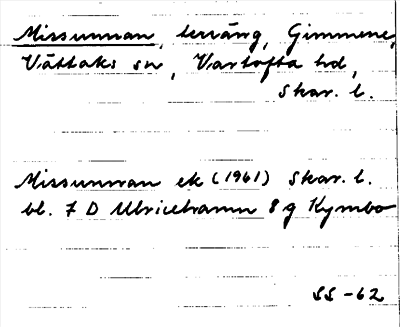 Missunnan, terräng, Gimmene,
Vättaks sn, Vartofta hd,
Skar. l.
Missunnan ek (1961) Skar. l.
bl. 7 D Ulricehamn 8 g Kymbo
SS -62